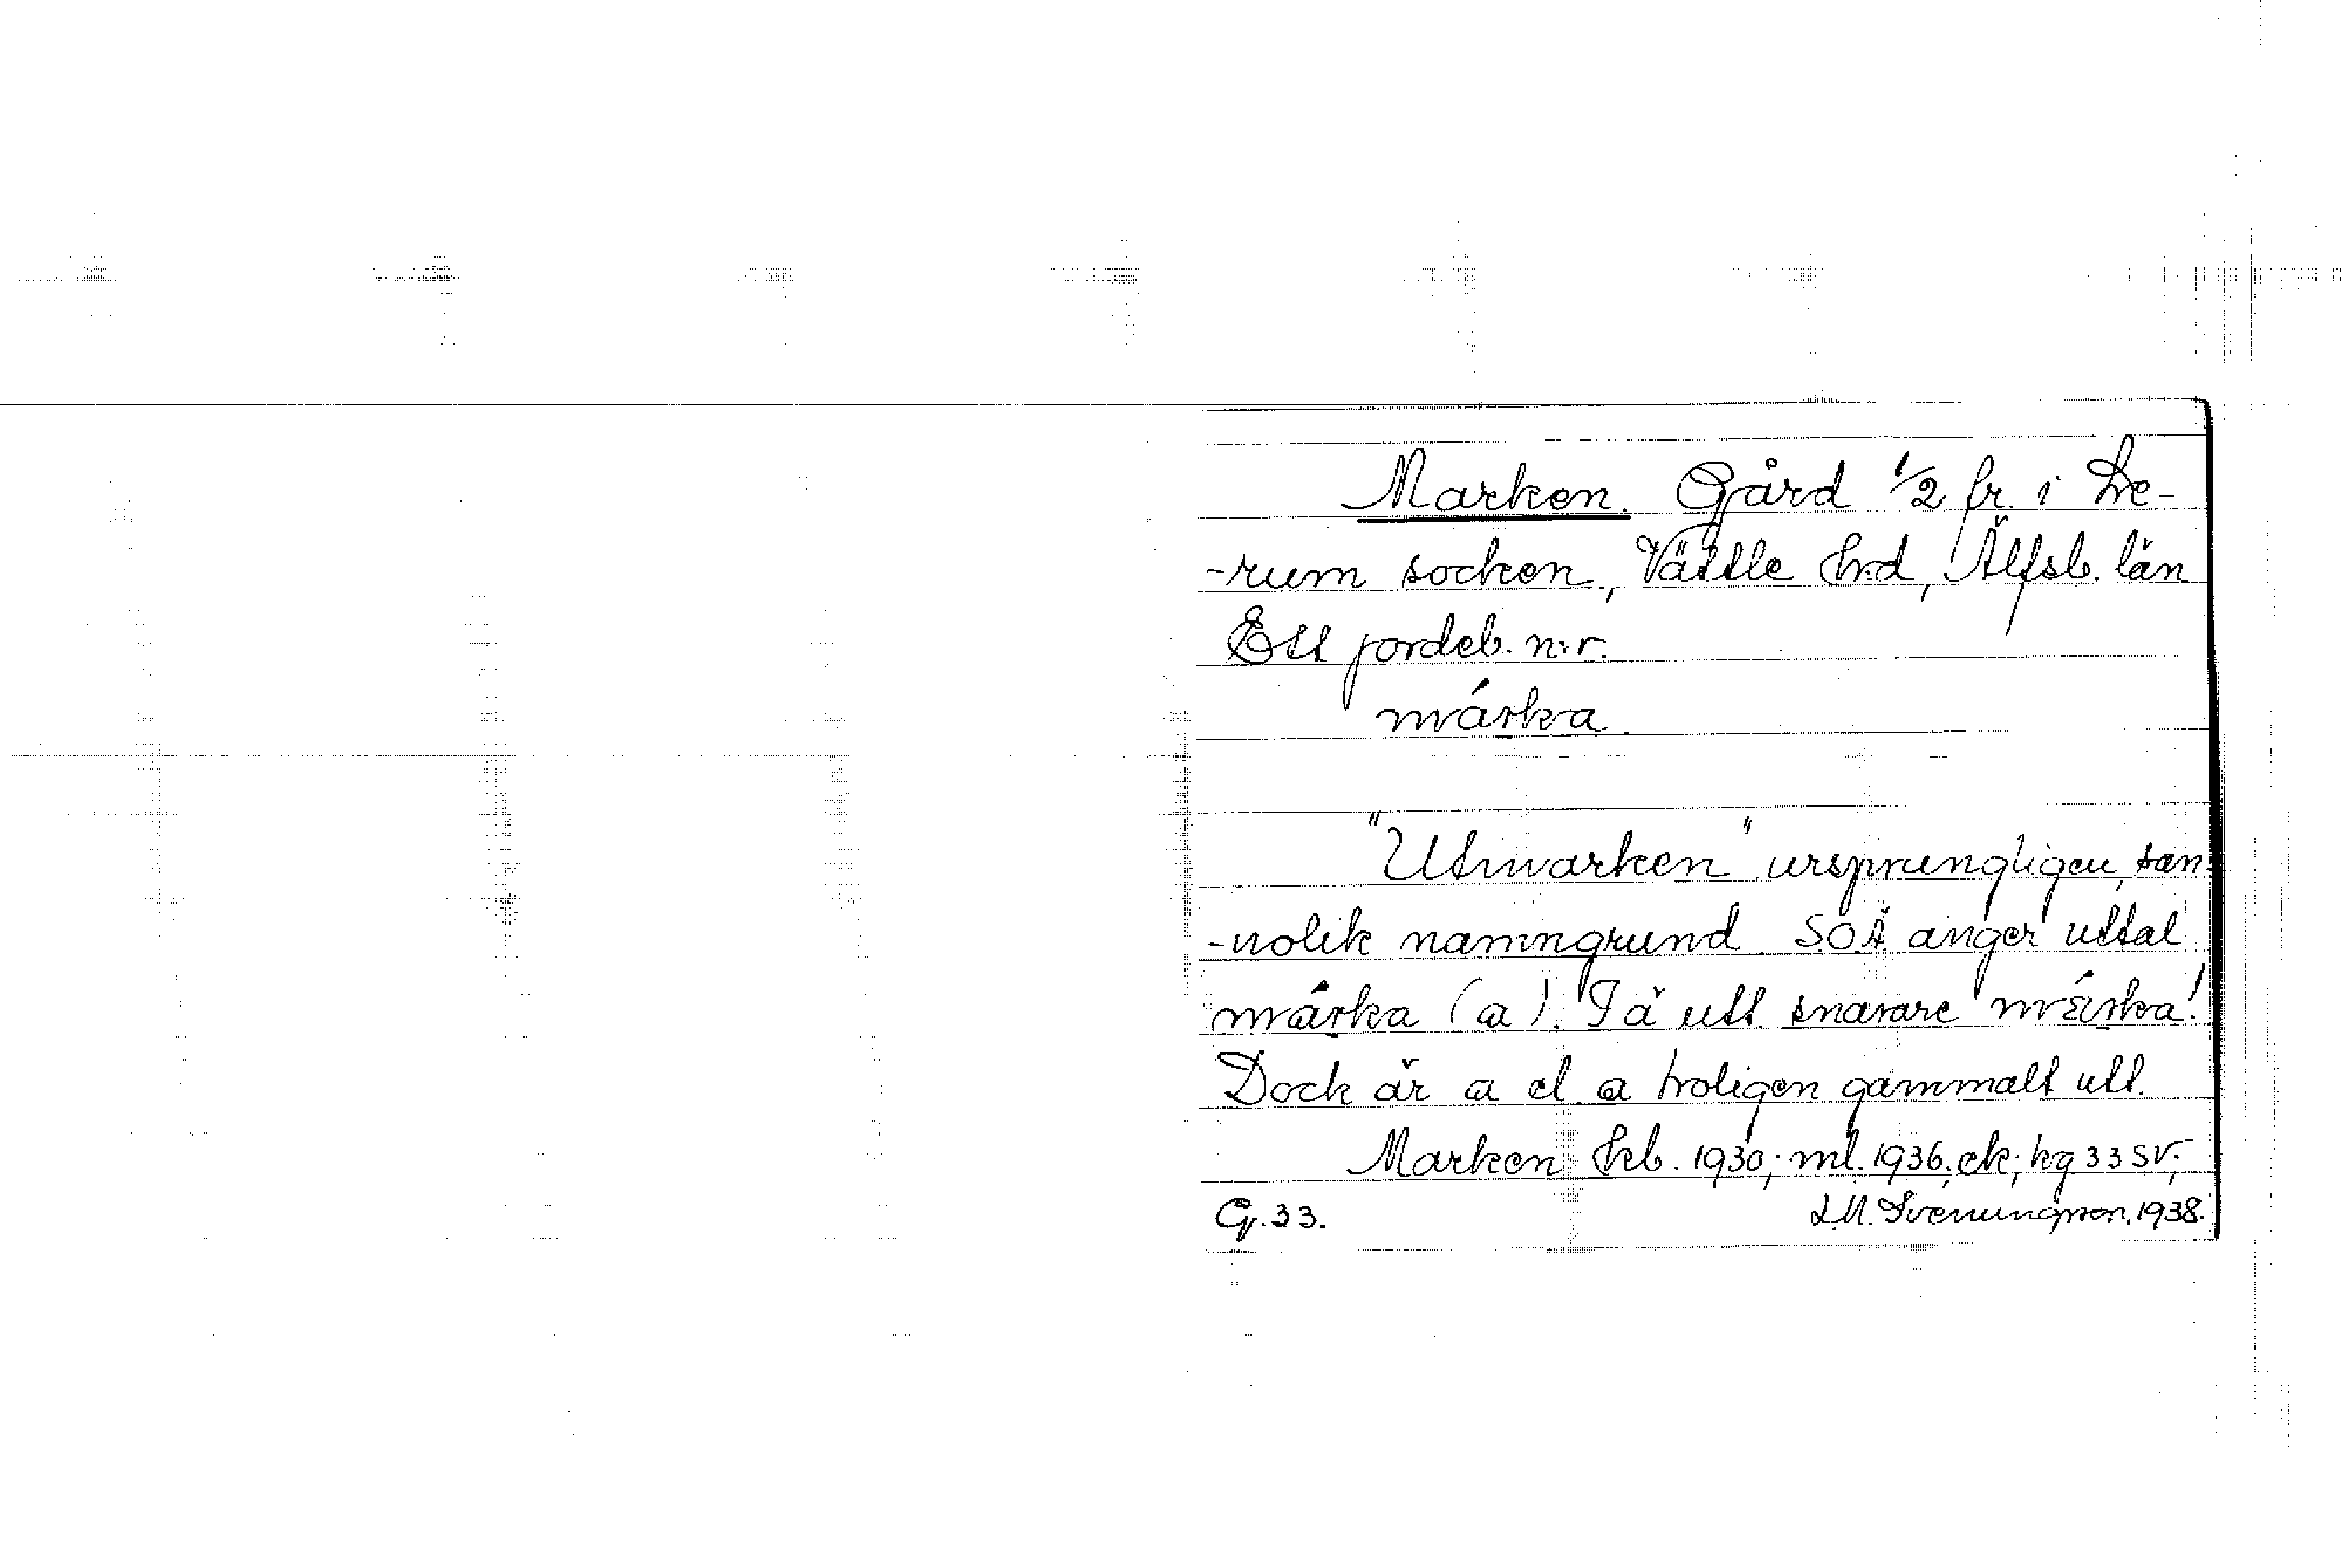 Marken. Gård 1/2 fr. i Le-
-rum socken, Vättle hrd, Älfsb. län
Ett jordeb. n:r.
márka.
"Utmarken" ursprungligen, san-
-nolik namngrund. SOÄ anger uttal
márka (a). Tä utt. snarare mǽrka!
Dock är a el. a troligen gammalt utt.
Marken hkb. 1930; ml. 1936; ek; kg 33 SV;
G. 33. L.M. Svenungsson. 1938.